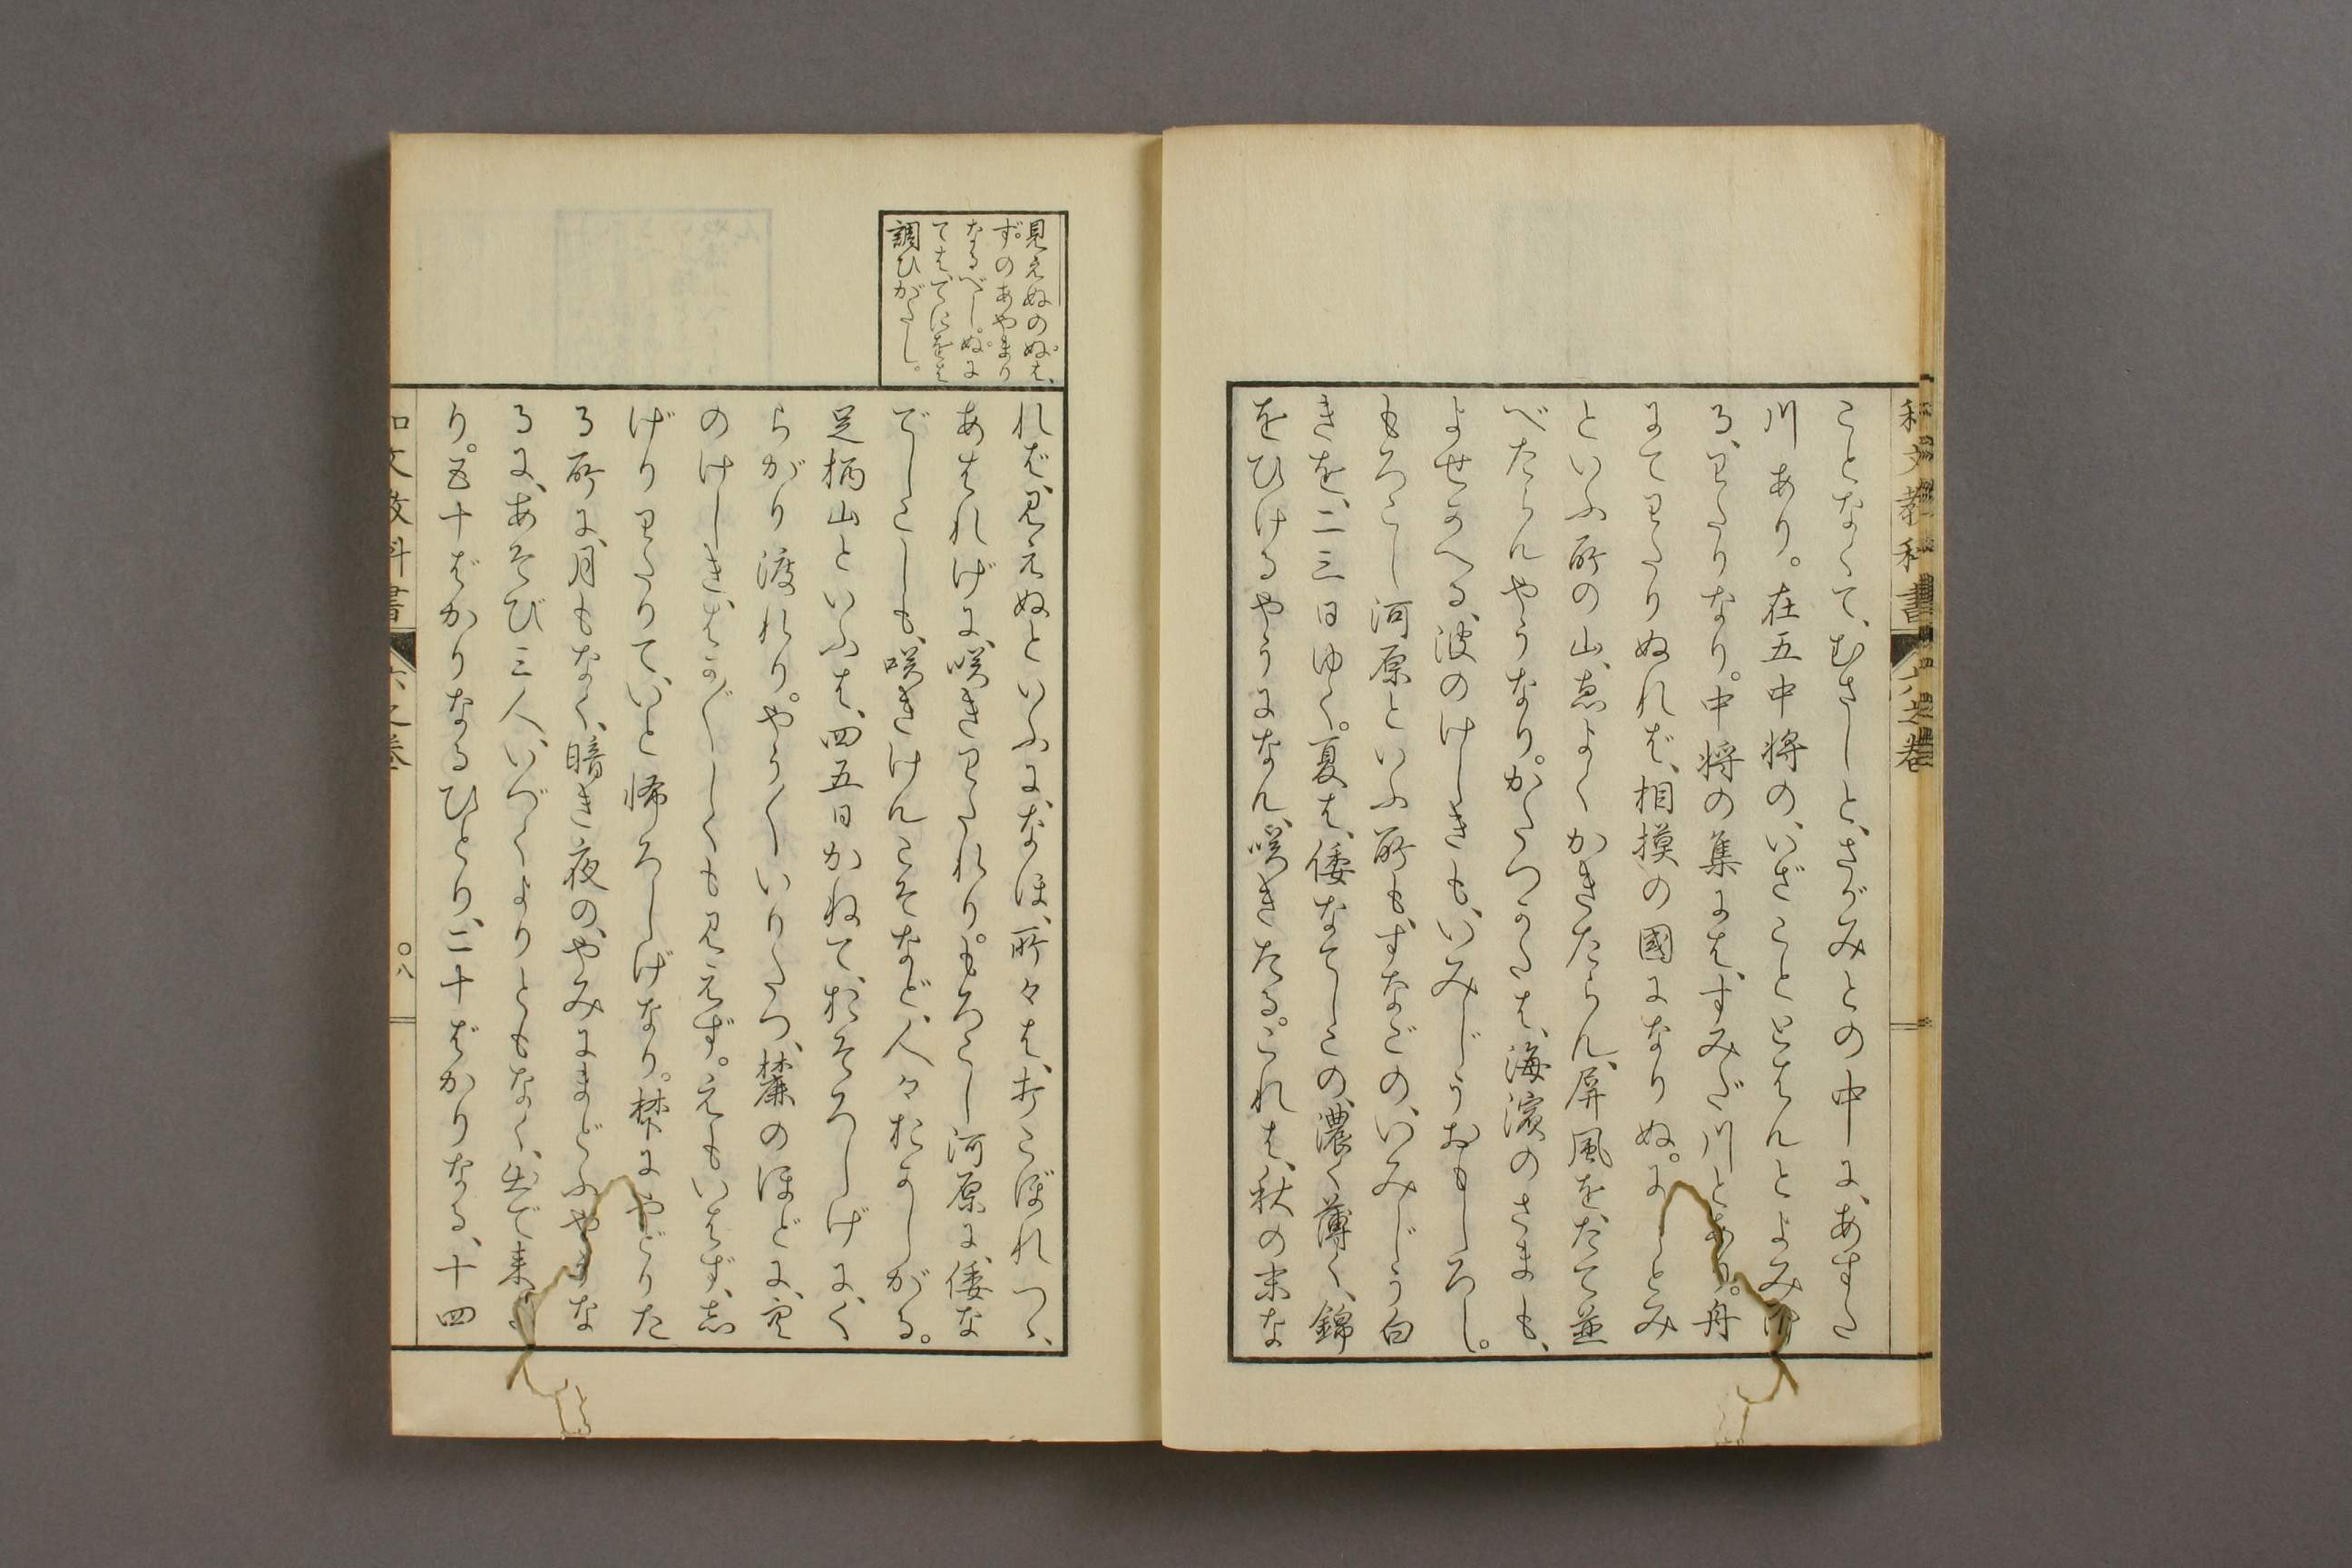 和文教科書 六之巻
ことなくて、むさしと、さがみとの中に、あすた
川あり。在五中将の、いざことゝはんとよみけ
る、わたりなり。中将の集には、すみだ川とあり。舟
にてわたりぬれば、相摸の國になりぬ。にしとみ
といふ所の山、ゑよくかきたらん、屏風をたて並
べたらんやうなり。かたつかたは、海濱のさまも、
よせかへる、波のけしきも、いみじうおもしろし。
もろこし河原といふ所も、すなごの、いみじう白
きを、二三日ゆく。夏は、倭なでしこの、濃く薄く、錦
をひけるやうになん、咲きたる。これは、秋の末な
見えぬのぬは、
ずのあやまり
なるべし。ぬに
ては、てにをは
調ひがたし。
れば、見えぬといふに、なほ、所々は、打こぼれつゝ、
あはれげに、咲きわたれり。もろこし河原に、倭な
でしこしも、咲きけんこそなど、人々、おかしがる。
足柄山といふは、四五日かねて、おそろしげに、く
らがり渡れり。やう〳〵いりたつ、麓のほどに、空
のけしき、はか〴〵しくも見えず。えもいはず、志
げりわたりて、いと怖ろしげなり。麓にやどりた
る所に、月もなく、暗き夜の、やみにまどふやうな
るに、あそび三人、いづくよりともなく、出で来た
り。五十ばかりなるひとり、二十ばかりなる、十四
和文教科書 六之巻 〇八